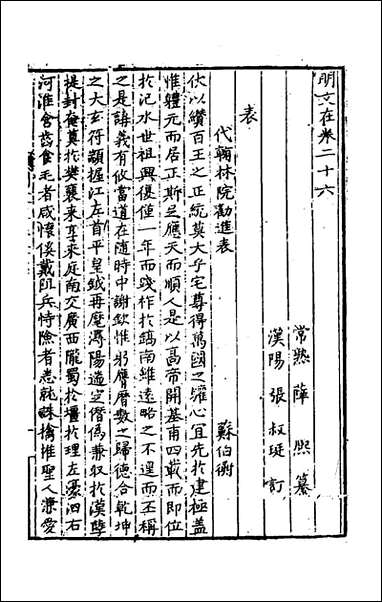 明文在卷二十六
常熟薛熙纂
漢陽張叔珽訂
表
代翰林院勸進表
蘇伯衡
伏以纘百王之正統莫大乎宅尊得萬國之驩心宜先於建極蓋
惟體元而居正斯足應天而順人是以高帝開基甫四載而即位
於汜水世祖興復僅一年而踐祚於鎬南雖遠略之不遑而丕稱
之是講義有攸當道在隨時中謝欽惟躬膺曆數之歸德合乾坤
之大玄符顯握江左首平皇鉞再麾潯陽遄定僭偽兼収於漢孽
提封奄奠於樊襄東亭來庭南交廣西隴蜀於壇於理左豪泗右
河淮含茲食毛者咸懷傒戴阻兵恃險者悉就誅擒惟聖人兼愛